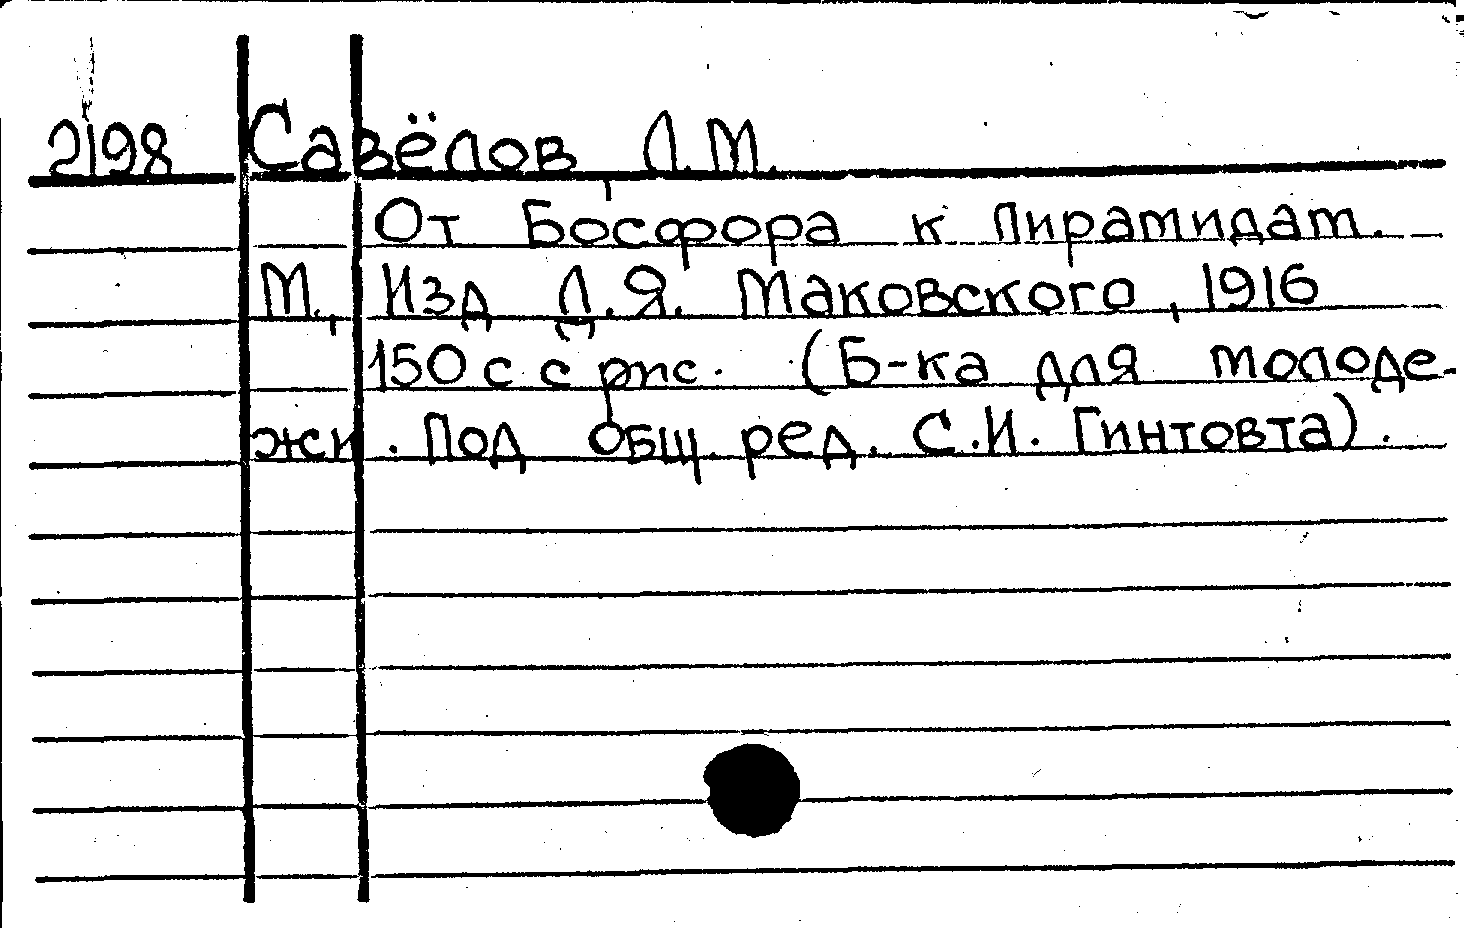 2198 Савёлов Л.М.
От Босфора к Пирамидам.
М., Изд Д.Я. Маковского, 1916
150 с с рис. (Б-ка для молоде-
жи. Под общ. ред. С.И. Гинтовта).